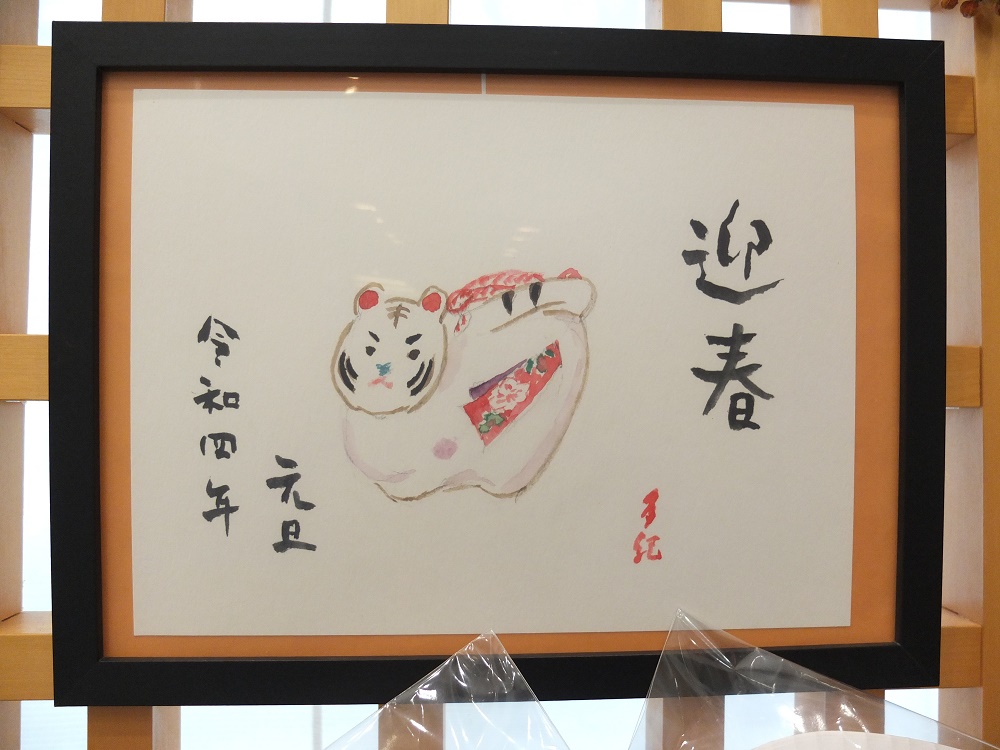 迎春
令和四年
元旦